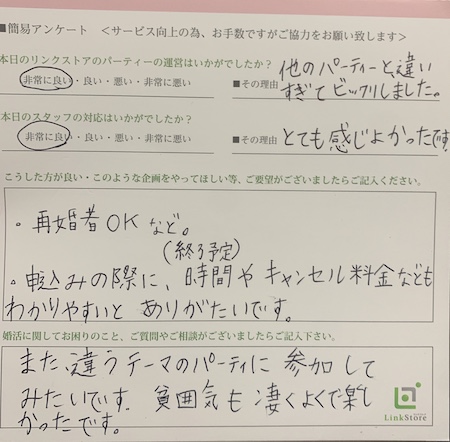 ■簡易アンケート ＜サービス向上の為、お手数ですがご協力をお願い致します＞
本日のリンクストアのパーティーの運営はいかがでしたか？
非常に良い・良い・悪い・非常に悪い
■その理由 他のパーティーと違い
すぎてビックリしました。
本日のスタッフの対応はいかがでしたか？
非常に良い・良い・悪い・非常に悪い
■その理由 とても感じよかったです。
こうした方が良い・このような企画をやってほしい等、ご要望がございましたらご記入ください。
・再婚者OKなど。
(終了予定)
・申込みの際に、時間やキャンセル料金なども
わかりやすいとありがたいです。
婚活に関してお困りのこと、ご質問やご相談がございましたらご記入下さい。
また、違うテーマのパーティに参加して
みたいです。貧囲気も凄くよくて楽し
かったです。
LinkStore